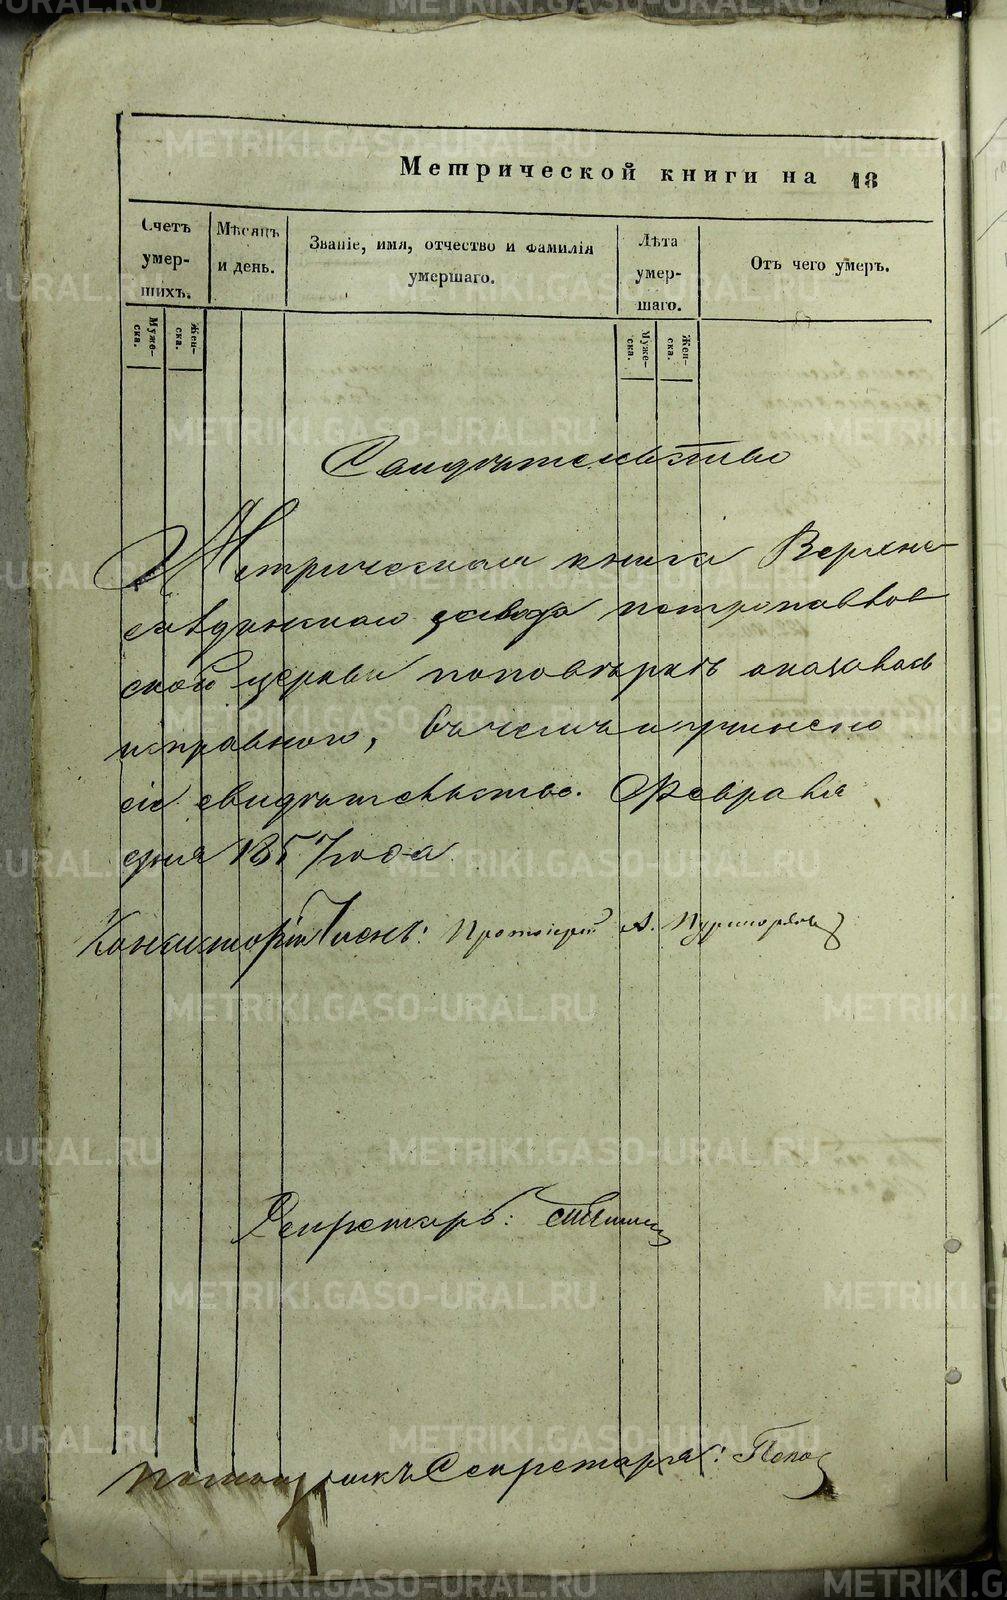 Метрической книги на 18
Счетъ умер- шихъ.
Мѣсяцъ и день.
Званіе, имя, отчество и фамилія умершаго.
Лѣта умер- шаго.
Отъ чего умеръ.
Муже- ска.
Жен- ска.
Муже- ска.
Жен- ска.
Свидѣтельство
Метрическая книга Верхне
завода петропавлов
ской церкви по повѣркѣ оказалась
исправною, въ чемъ и учинено
сіе свидѣтельство. Февраля
дня 1857 года
Консисторіи Членъ: Протоіерей А.
Секретарь:
Помощникъ Секретаря: Попов
METRIKI.GASO-URAL.RU